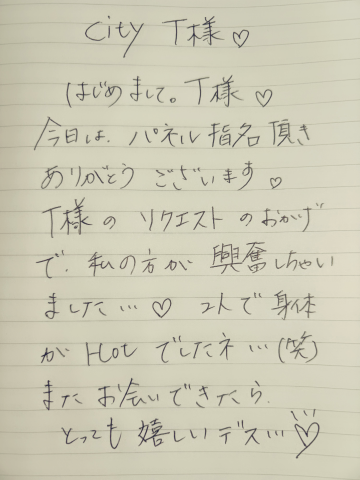 City T様♡
はじめまして。T様♡
今日は、パネル指名頂き
ありがとうございます♡
T様のリクエストのおかげ
で、私の方が興奮しちゃい
ました…♡ 2人で身体
がHotでしたネ…(笑)
またお会いできたら、
とっても嬉しいデス…♡